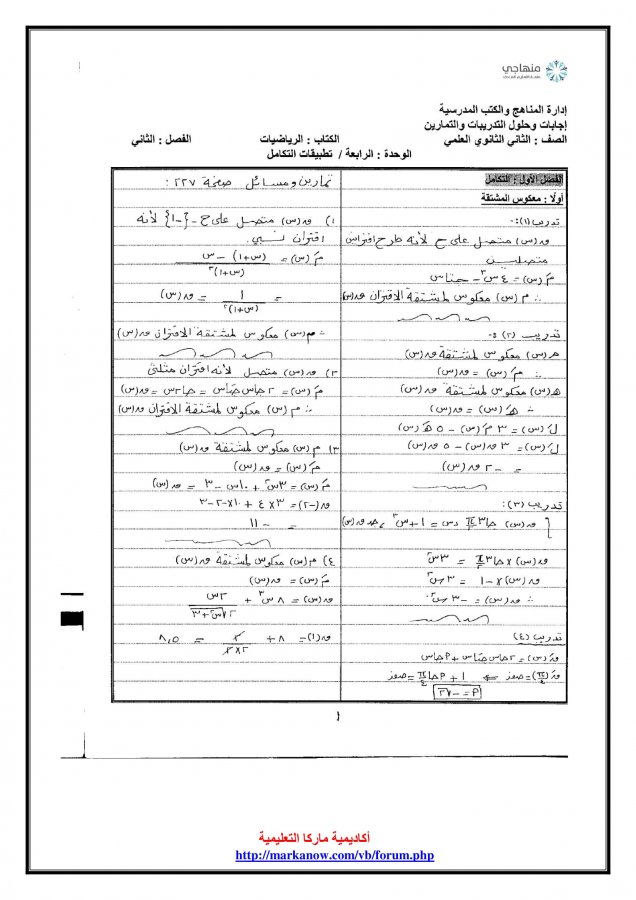 منهاجي
إدارة المناهج والكتب المدرسية
إجابات وحلول التدريبات والتمارين
الصف : الثاني الثانوي العلمي الكتاب : الرياضيات الفصل : الثاني
الوحدة : الرابعة / تطبيقات التكامل
الفصل الأول : التكامل
أولًا : معكوس المشتقة
تدريب (١):
ق(س) متصل على ح لأنه طرح اقترانين
متصلين
مَ(س) = ٤س٣ - جتاس
∴ م(س) معكوس لمشتقة الاقتران ق(س)
تدريب (٢):
هـ(س) معكوس لمشتقة ق(س)
∴ مَ(س) = ق(س)
هـ(س) معكوس لمشتقة ق(س)
∴ هـَ(س) = ق(س)
لَ(س) = ٣مَ(س) - ٥هـَ(س)
لَ(س) = ٣ق(س) - ٥ق(س)
= -٢ق(س)
تدريب (٣):
ق(س) × جا٣π/٢ = ٣س٢
ق(س) × -١ = ٣س٢
∴ ق(س) = -٣س٢
تدريب (٤)
قَ(س) = ٢جاس جتاس + P جاس
قَ(π/٤) = صفر ⇐ ١ + P جا π/٤ = صفر
P = -√٢
تمارين ومسائل صفحة ٢٢٧ :
١) ق(س) متصل على ح - {-١} لأنه
اقتران نسبي.
مَ(س) = (س+١) - س / (س+١)٢
= ١ / (س+١)٢ = ق(س)
∴ م(س) معكوس لمشتقة الاقتران ق(س)
٢) ق(س) متصل لأنه اقتران مثلثي
مَ(س) = ٢جاس جتاس = جا٢س = ق(س)
∴ م(س) معكوس لمشتقة الاقتران ق(س)
٣) م(س) معكوس لمشتقة ق(س)
مَ(س) = ق(س)
مَ(س) = ٣س٢ + ١٠س - ٣ = ق(س)
ق(-٢) = ٣×٤ + ١٠×-٢ - ٣
= -١١
٤) م(س) معكوس لمشتقة ق(س)
مَ(س) = ق(س)
ق(س) = ٨س٣ + ٢س / ٢√(س٢+٣)
ق(١) = ٨ + ٢ / ٢×٢ = ٨,٥
أكاديمية ماركا التعليمية
http://markanow.com/vb/forum.php